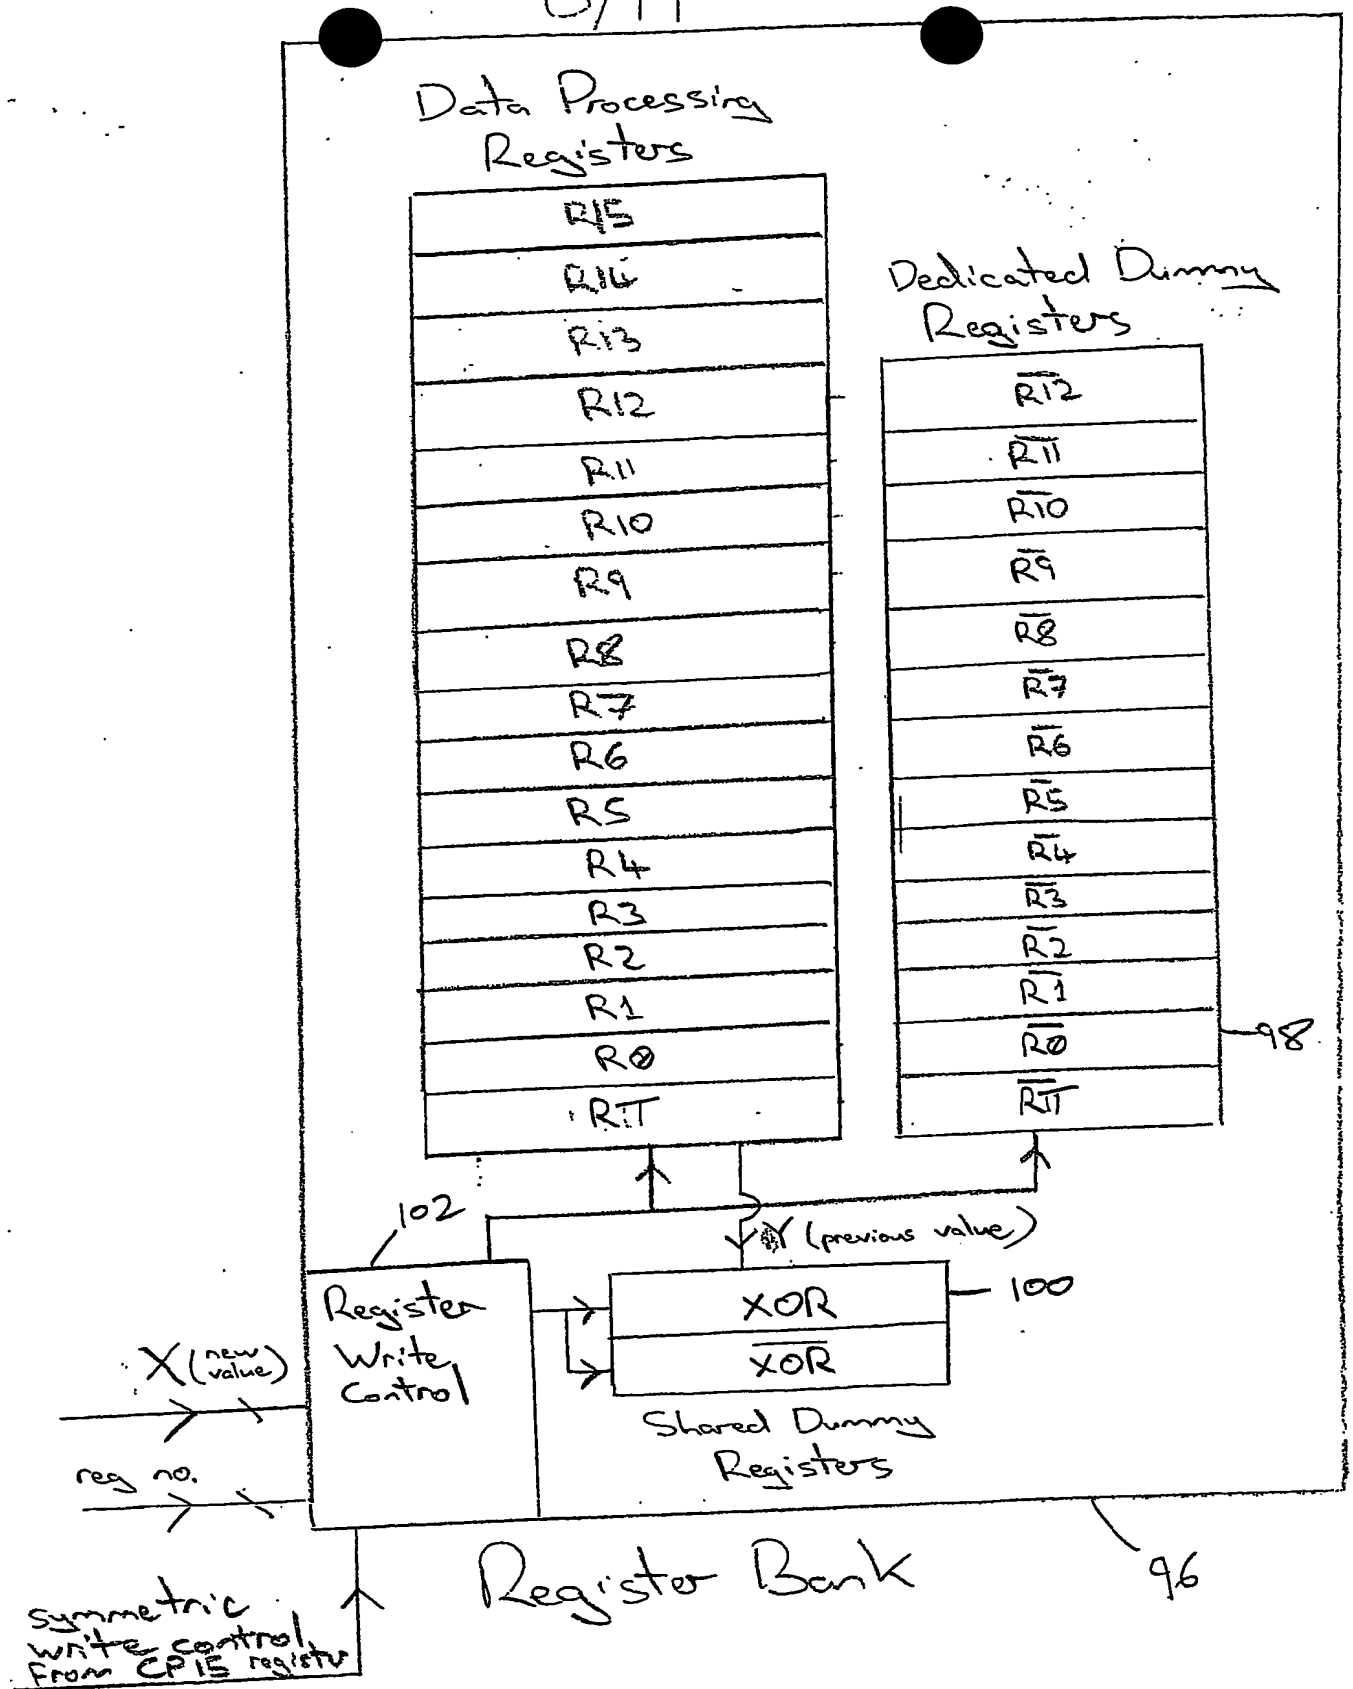 Data Processing
Registers
R15
R14
R13
R12
R11
R10
R9
R8
R7
R6
R5
R4
R3
R2
R1
RØ
RT
Dedicated Dummy
Registers
R̅1̅2̅
R̅1̅1̅
R̅1̅0̅
R̅9̅
R̅8̅
R̅7̅
R̅6̅
R̅5̅
R̅4̅
R̅3̅
R̅2̅
R̅1̅
R̅Ø̅
R̅T̅
98
102
Y (previous value)
Register
Write
Control
XOR
X̅O̅R̅
100
Shared Dummy
Registers
X (new value)
reg no.
symmetric
write control
from CP15 register
Register Bank
96